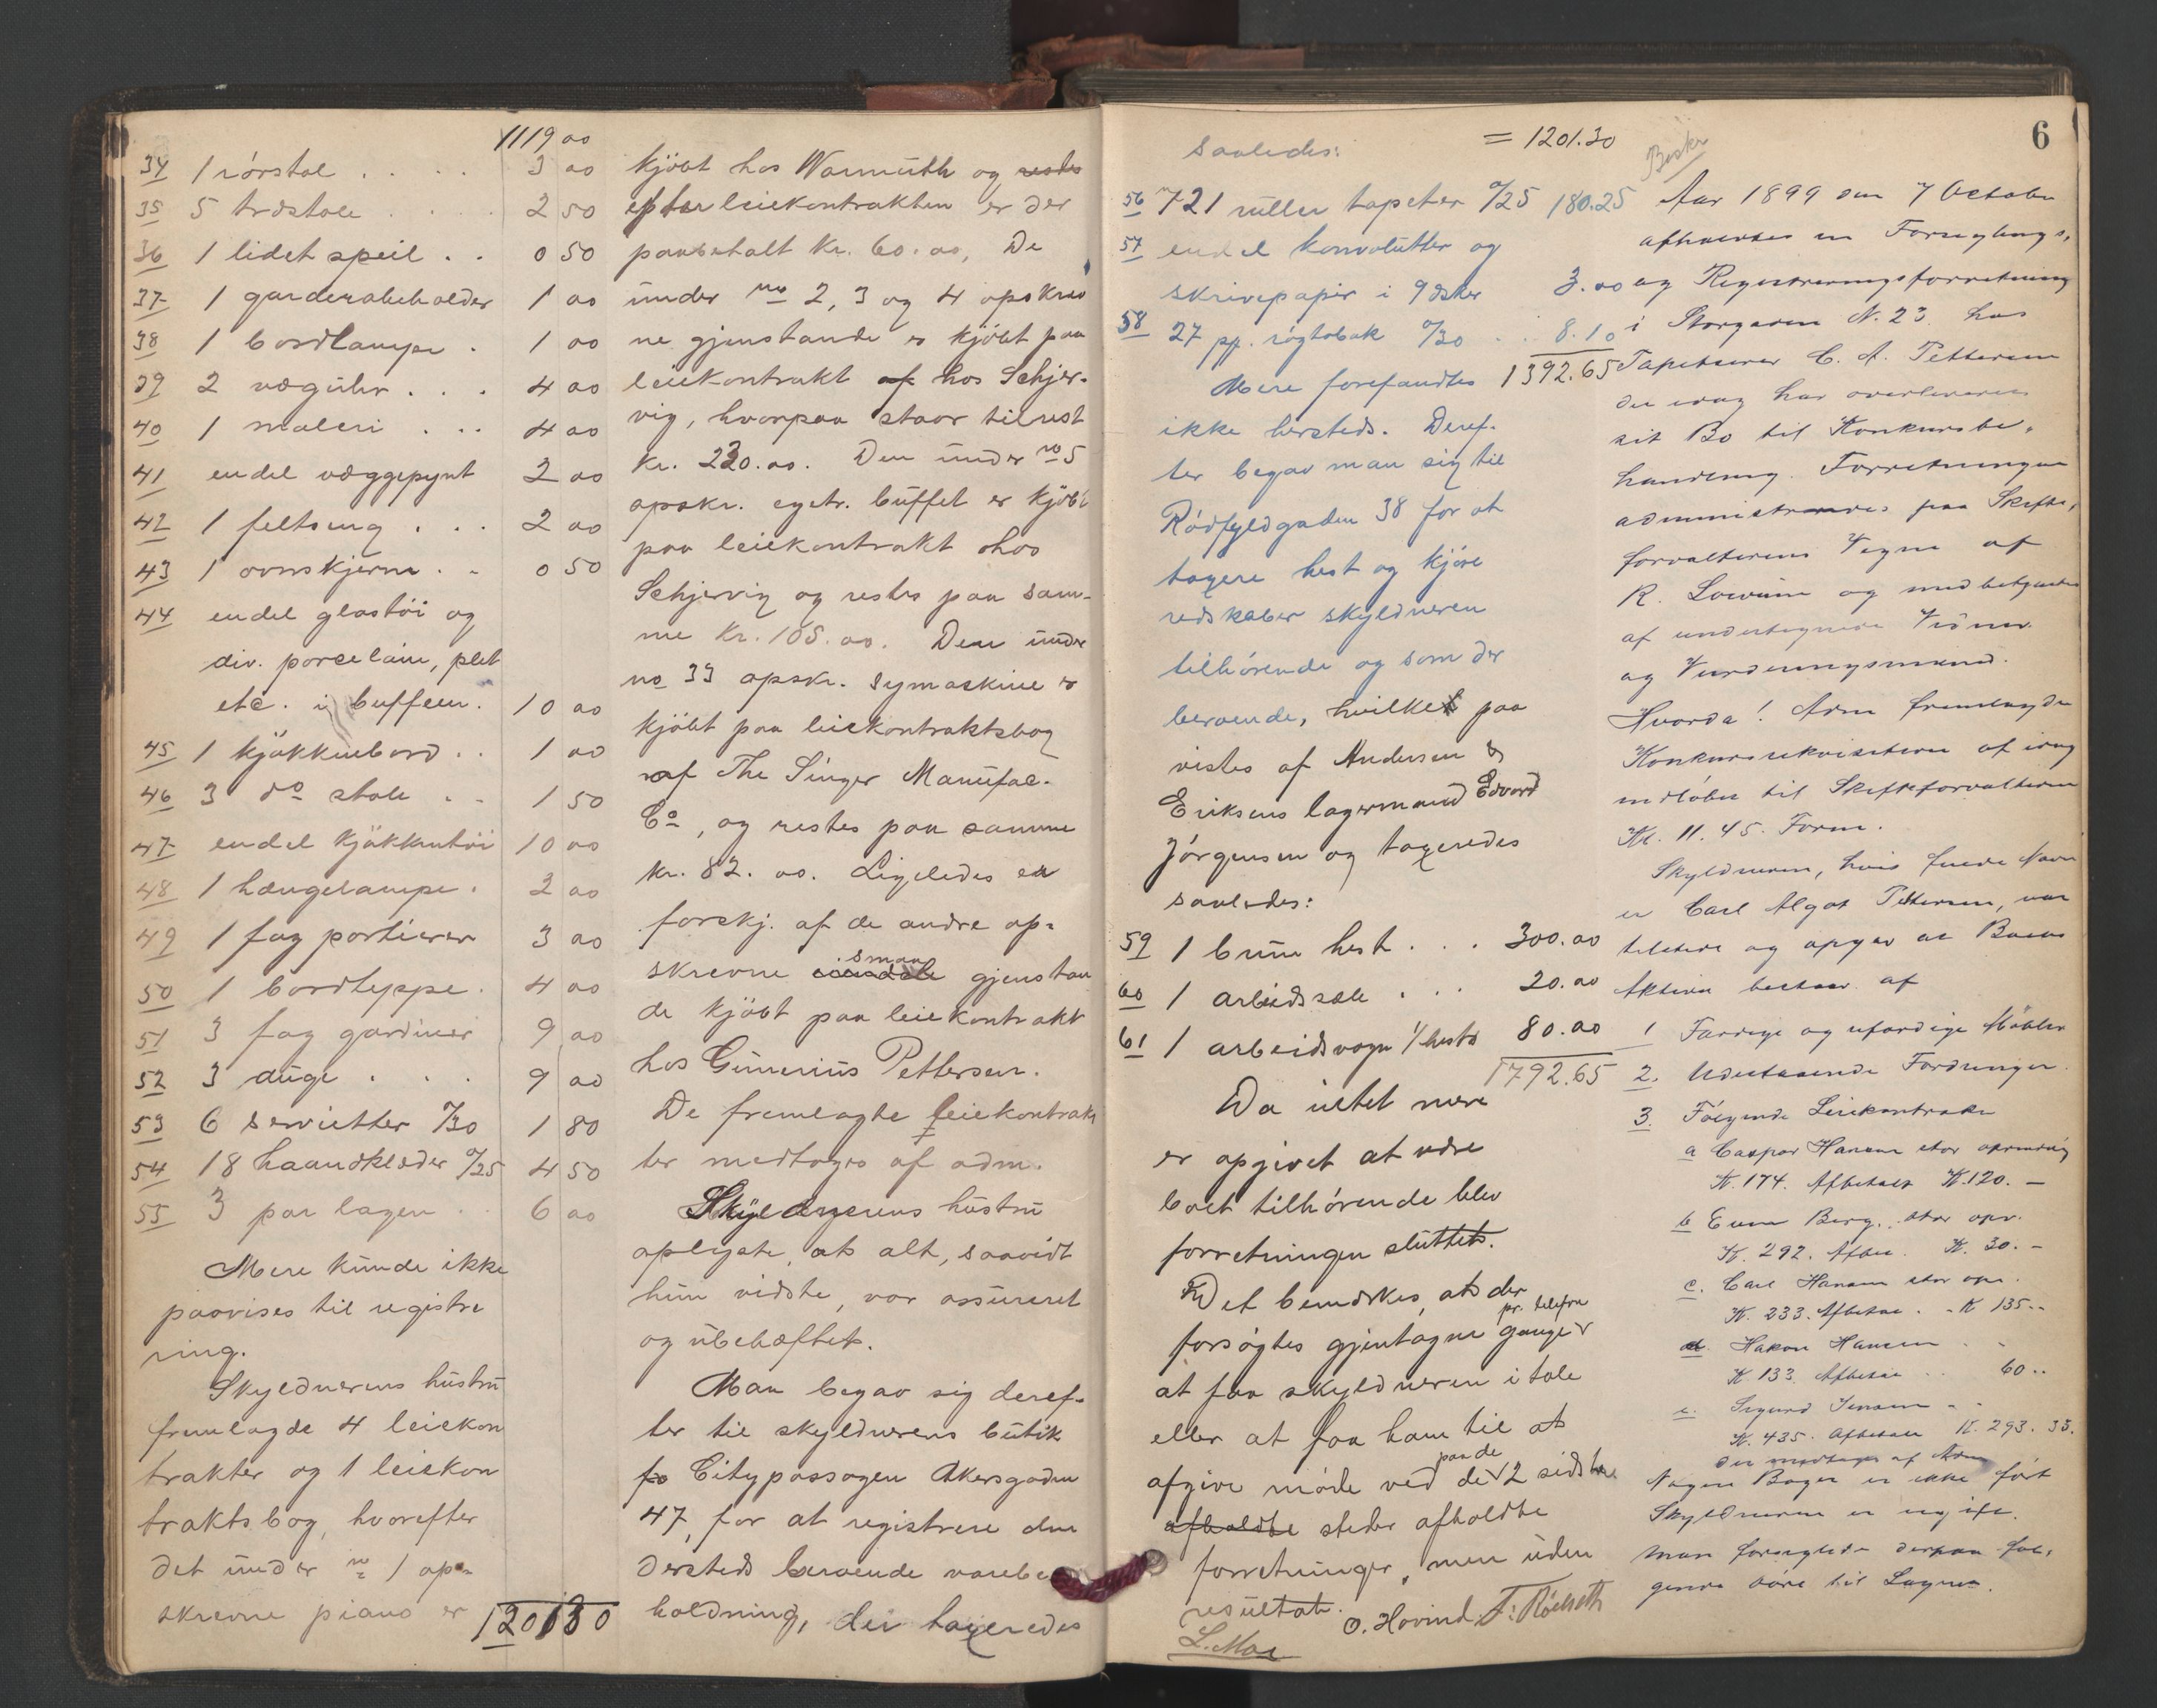 1119 00
34 1 rörstol . . . . 3 00
35 5 træstole . . . . 2 50
36 1 lidet speil . . 0 50
37 1 garderobeholder 1 00
38 1 bordlampe . 1 00
39 2 væguhr . . . 4 00
40 1 maleri . . . 4 00
41 endel væggepynt 2 00
42 1 feltseng . . . 2 00
43 1 ovnskjerm . . 0 50
44 endel glastöi og
div. porcelain, plet
etc. i buffeen. 10 00
45 1 kjökkenbord . . 1 00
46 3 do stole . . 1 50
47 endel kjökkentöi 10 00
48 1 hængelampe . 2 00
49 1 fag portierer 3 00
50 1 bordteppe . 4 00
51 3 fag gardiner 9 00
52 3 duge . . . 9 00
53 6 servietter %30 1 80
54 18 haandklæder %25 4 50
55 3 par lagen . . 6 00
Mere kunde ikke
paavises til registre
ring.
Skyldnerens hustru
fremlagde 4 leiekon
trakter og 1 leiekon
traktsbog, hvorefter
det under no 1 op-
skrevne piano er
120130
kjöbt hos Warmuth og restes
efter leiekontrakten er der
paabetalt Kr. 60.00, De
under no 2, 3 og 4 opskrev
ne gjenstande er kjöbt paa
leiekontrakt af hos Schjer-
vig, hvorpaa staar tilrest
Kr. 220.00. Den under no 5
opskr. egetr. buffet er kjöbt
paa leiekontrakt hos
Schjervig og restes paa sam-
me Kr. 105.00. Den under
no 33 opskr. symaskine er
kjöbt paa leiekontraktsbog
af The Singer Manufac.
Co, og restes paa samme
kr. 82.00. Ligeledes er
forskj. af de andre op-
skrevne smaa gjenstan
de kjöbt paa leiekontrakt
hos Gunerius Pettersen.
De fremlagte leiekontrak
ter medtoges af adm.
Skyldnerens hustru
oplyste, at alt, saavidt
hun vidste, var assureret
og ubehæftet.
Man begav sig deref-
ter til skyldnerens butik
fo Citypassagen Akersgaden
47, for at registrere den
dersteds beroende varebe
holdning, der taxeredes
saaledes: = 1201.30
56 721 ruller tapeter %25 180.25
57 endel konvolutter og
skrivepapir i 9 æsker 3.00
58 27 pp. rögtobak %30 . . 8.10
Mere forefandtes 1392.65
ikke hersteds. Deref-
ter begav man sig til
Rödfyldgaden 38 for at
taxere hest og kjöre
redskaber skyldneren
tilhörende og som der
beroende, hvilket paa
vistes af Andersen &
Eriksens lagermand Edvard
Jörgensen og taxeredes
saaledes:
59 1 brun hest . . . 300.00
60 1 arbeidssele . . . 20.00
61 1 arbeidsvogn 1/hests 80.00
1792.65
Da intet mere
er opgivet at være
boet tilhörende blev
forretningen sluttet.
Det bemærkes, at der
pr. telefon
forsögtes gjentagne gange
at faa skyldneren i tale
eller at faa ham til at
paa de
afgive möde ved de 2 sidste
afholdte steder afholdte
forretninger, men uden
resultat. O. Hovind. F. Röhseth
L. Moe
6
Beskr
Aar 1899 den 7 October
afholdtes en Forseglings,
og Registreringsforretning
i Storgaden N. 23 hos
Tapetserer C. A. Pettersen
der idag har overleveret
sit Bo til Konkursbe,
handling. Forretningen
administreredes paa Skifte,
forvalterens Vegne af
R. Lowum og med betjente
af undertegnede Vidner
og Vurderingsmænd.
Hvorda! Adm fremlagde
Konkursrekvisition af idag
indløbet til Skifteforvalteren
Kl. 11.45. Form.
Skyldneren, hvis fulde Navn
er Carl Algot Pettersen, var
tilstede og opgav at Boets
Aktiva bestaar af
1 Færdige og ufærdige Möbler
2. Udestaaende Fordringer.
3. Følgende Leiekontrakter
a Caspar Hansen stor
K. 174. Afbetalt K. 120. —
b Even Berg. stor opr.
K. 292. Afbet. K. 30. —
c. Carl Hansen stor opr.
K. 233. Afbetal . - K 135 --
d. Hakon Hansen . -
K 133. Afbetal . . 60 ..
e. Sigurd Jensen - -
K. 435. Afbetalt K. 293. 35.
der medtages af Adm
Nogen Bøger er ikke ført
Skyldneren er ugift.
Man forseglede derpaa føl,
gende Døre til Lageret.